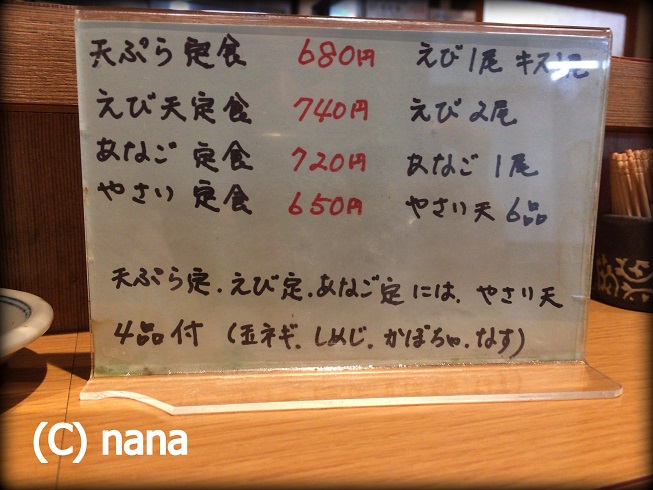 天ぷら定食 680円 えび1尾 キス1尾
えび天定食 740円 えび2尾
あなご定食 720円 あなご1尾
やさい定食 650円 やさい天 6品
天ぷら定.えび定.あなご定には、やさい天
4品付 (玉ネギ.しめじ.かぼちゃ.なす)
(C) nana